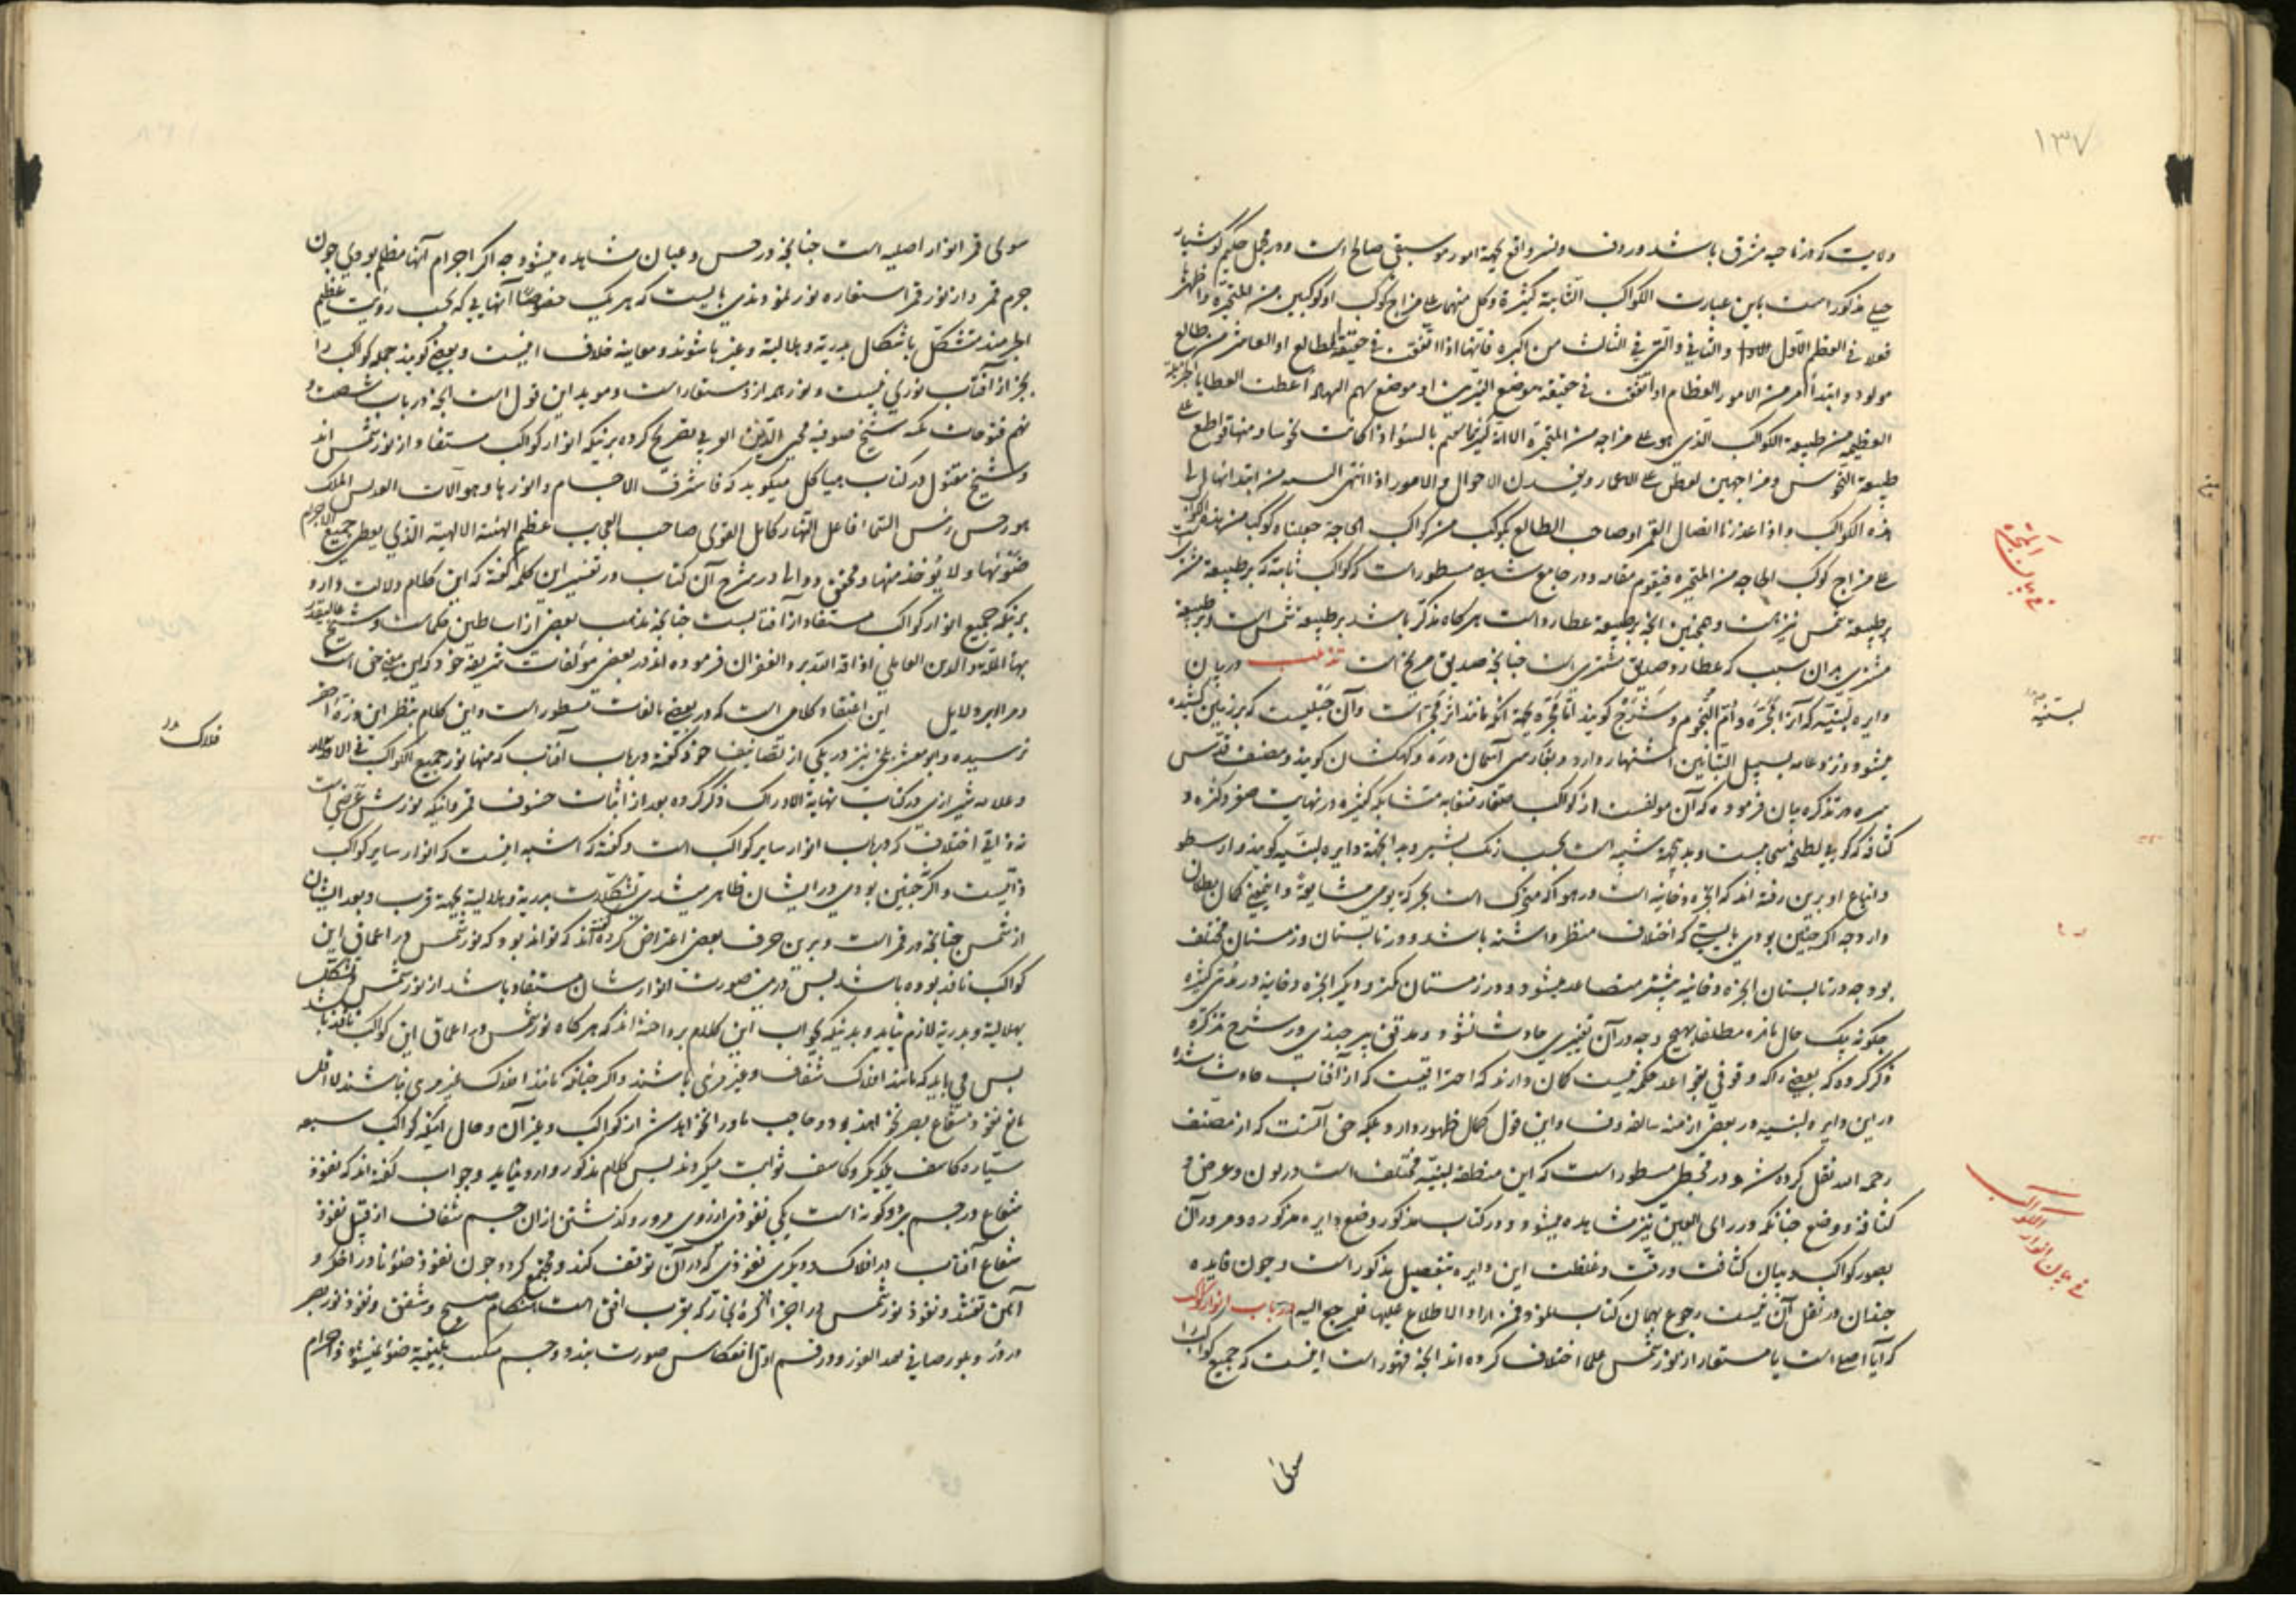 ١٣٧
ولایت که در ناحیه مشرق باشد و ردف و نسر واقع بجهة امور موسیقی صالح است و در مجمل حکیم کوشیار
جیلی مذکور است باین عبارت الکواکب الثابتة کثیرة و کل منها علی مزاج کوکب او کوکبین من المتحیرة و اظهرها
فعلا فی العظم الاول والثانی والتی فی الثالث من الکبرة فانها اذا اتفق فی حقیقة الطالع او العاشر من طالع
مولود و ابتداء امر من الامور العظام او اتفق فی حقیقة موضع النیرین او موضع سهم اعطت العطایا الجزیلة
العظیمة من طبیعة الکوکب الذی هو علی مزاجه من المتحیرة الا ان بالسوء اذا کانت نحوسا و منها قواطع علی
طبیعة النحوس و مزاجهم علی الاعمار و یفسدن الاحوال والامور اذا انتهی من ابتدائها الی
هذه الکواکب و اذا اعوزنا اتصال القمر او صاحب الطالع بکوکب من کواکب الحاجة جعلنا کوکبا من هذه الکواکب
علی مزاج کوکب الحاجة من المتحیرة فیقوم مقامه و در جامع شاهی مسطور است که کواکب ثابته که بر طبیعة مشتری
بر طبیعة شمس نیز است و همچنین انچه بر طبیعة عطارد است هرکاه مذکر باشد بر طبیعة شمس است و بر طبیعة
مشتری بدان سبب که عطارد صدیق مشتری است چنانچه صدیق مریخ است تذنیب در بیان
دایره لبنیه که آنرا مجرّه و اُمّ النّجوم و شَرَج کویند امّا مجرّه بجهة آنکه مانند اثر مجرّ است و آن حبلیست که بر زمین کشیده
میشود و نزد عامه بسبیل التبّانین اشتهار دارد و بفارسی آسمان دره و کهکشان کویند و مصنف قدس
سره در تذکره بیان فرموده که آن مولفست از کواکب صغار متقاربه متشابکه کثیره در نهایت صغر و کثره و
کثافه که کویی لطخه سحابیست و بدینجهة شبیه است بحسب رنگ بشیر و بدانجهة دایره لبنیه کویند و ارسطو
و اتباع او برین رفته اند که ابخره دخانیه است در هوا که متحرک است بحرکة یومی مشایعةً و این معنی کمال بطلان
دارد چه اکر چنین بودی بایستی که اختلاف منظر داشته باشد و در تابستان و زمستان مختلف
بود چه در تابستان ابخره دخانیه بیشتر متصاعد میشود و در زمستان کمتر و دیکر ابخره دخانیه در مدّتی کثیره
چکونه بیک حال ماند مطلقا بهیچ وجه در آن تغییری حادث نشود و مدقق بیرجندی در شرح تذکره
ذکر کرده که بعضی را که وقوفی بقواعد حکمیه نیست کمان دارند که احتراقیست که از آفتاب حادث شده
در این دایره لبنیه در بعضی ازمنه سالفه و این قول کمال ظهور دارد بلکه حق آنست که از مصنف
رحمه الله نقل کرده شد و در مجسطی مسطور است که این منطقه لبنیّه مختلف است در لون و عرض و
کثافة و وضع چنانکه در رای العین نیز مشاهده میشود و در کتاب مذکور وضع دایره مذکوره و مرور آن
بصور کواکب و بیان کثافت و رقت و غلظت این دایره بتفصیل مذکور است و چون فایده
چندان در نقل آن نیست رجوع بهمان کتاب نمود فمن اراد الاطلاع علیها فلیرجع الیه در باب انوار کواکب
که آیا اصلی است یا مستعار از نور شمس علما اختلاف کرده اند انچه مشهور است اینست که جمیع کواکب را
سوای
فی بیان المجرة
لبنیه
فی بیان انوار الکواکب
سوای قمر انوار اصلیه است چنانچه در حس و عیان مشاهده میشود چه اکر اجرام آنها مظلم بودی چون
جرم قمر و از نور قمر استفاده نور نمودندی بایست که هر یک خصوصًا آنهایی که بحسب رؤیت عظیم
اجرامند متشکّل باشکال بدریة و هلالیة و غیرها شوند و معاینه خلاف اینست و بعضی کویند جمله کواکب را
بجز از آفتاب نوری نیست و نور همه از او مستعار است و موید این قول است انچه در باب شصت و
نهم فتوحات مکیه شیخ صوفیه محیی الدین العربی تصریح کرده برینکه انوار کواکب مستفاد از نور شمس اند
و شیخ مقتول در کتاب هیاکل میکوید که فاشرف الاجسام و انورها و هو الملک
هورخش رئیس السماء فاعل النهار کامل القوی صاحب العجایب عظیم الهیئة الالهیة الذی یعطی جمیع الاجرام
ضوئها و لا یؤخذ منها و محقق دوانی در شرح آن کتاب در تفسیر این کلمه کفته که این کلام دلالت دارد
برینکه جمیع انوار کواکب مستفاد از آفتابست چنانچه مذهب بعضی از اساطین حکماست و شیخ عالیقدر
بهاء الملة والدین العاملی اذاقه الله برد الغفران فرموده اند در بعضی مؤلفات شریفه خود که این معنی حق است
و مرا بر دلایل این اعتقاد کلامی است که در بعضی تالیفات مسطور است و این کلام بنظر این ذره احقر
نرسیده و ابو معشر بلخی نیز در یکی از تصانیف خود کفته در باب آفتاب که منها نور جمیع الکواکب فی الافلاک
و علامه شیرازی در کتاب نهایة الادراک ذکر کرده بعد از اثبات خسوف قمر و اینکه نورش عَرَضی است
نه ذاتی اختلاف که در باب انوار سایر کواکب است و کفته که اشبه اینست که انوار سایر کواکب
ذاتیست و اکر چنین بودی در ایشان ظاهر میشدی تشکّلات بدریة و هلالیة بجهة قرب و بعد ایشان
از شمس چنانچه در قمر است و برین حرف بعضی اعتراض کرده کفته اند که تواند بود که نور شمس در اعماق این
کواکب نافذ بوده باشد پس درین صورت انوارشان مستفاد باشد از نور شمس و تشکّل
بهلالیة و بدریة لازم نیاید و بدینکه جواب این کلام پرداخته اند که هر کاه نور شمس در اعماق این کواکب نافذ باشد
پس می باید که مانند افلاک شفاف و غیر مرئی باشند و اکر چنانچه مانند افلاک غیر مرئی نباشند لا اقل
مانع نفوذ شعاع بصر نخواهند بود و حاجب ماوراء نخواهند شد از کواکب و غیر آن و حال اینکه کواکب سبعه
سیّاره کاسف یکدیکر و کاسف ثوابت میکردند پس کلام مذکور وارد نیاید و جواب کفته اند که نفوذ
شعاع در جسم بر دو کونه است یکی نفوذی از روی مرور و کذشتن از آن جسم شفاف از قبیل نفوذ
شعاع آفتاب در افلاک و دیکری نفوذی که در آن توقف کند و مجتمع کردد چون نفوذ ضوء نار در اخکر و
آهن تفتیده و نفوذ نور شمس در اجزاء کره بخار که بقرب افق است هنکام صبح و شفق و نفوذ نور بصر
در و بلور صافی بعید الغور و در قسم اول انعکاس صورت نبندد و جسم مکتسب بکیفیة ضوئیه نمیشود و اجرام
فلاک